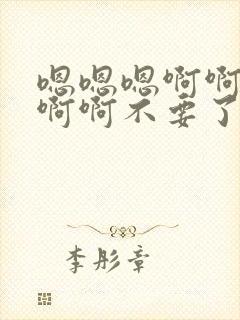 嗯嗯嗯啊啊
啊啊不要了
李彤章